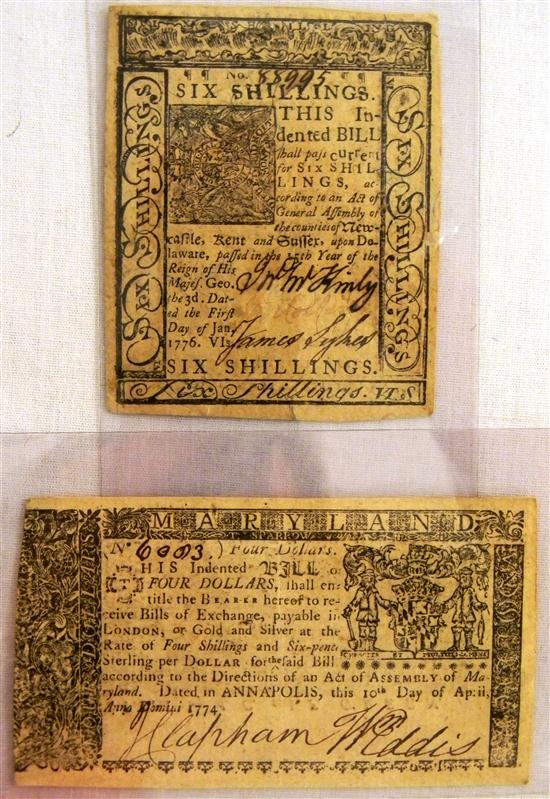 No. 88995
SIX SHILLINGS.
THIS In-
dented BILL
shall pass current
for SIX SHIL
LINGS, ac-
cording to an Act of
General Assembly of
the counties of New-
castle, Kent and Sussex, upon De-
laware, passed in the 15th Year of the
Reign of His
Majes. Geo.
the 3d. Dat-
ed the First
Day of Jan.
1776. VI s
Jno McKinly
James Sykes
SIX SHILLINGS.
Six Shillings. VI. S
SIX SHILLINGS
SIX SHILLINGS
MARYLAND
T. SPARROW
No. 6003.) Four Dollars.
THIS Indented BILL of
FOUR DOLLARS, shall en-
title the BEARER hereof to re-
ceive Bills of Exchange, payable in
LONDON, or Gold and Silver at the
Rate of Four Shillings and Six-pence
Sterling per DOLLAR for the said Bill
according to the Directions of an Act of ASSEMBLY of Ma-
ryland. Dated in ANNAPOLIS, this 10th Day of April,
Anno Domini 1774
CRESCITE ET MULTIPLICAMINI
J Clapham Wm Eddis